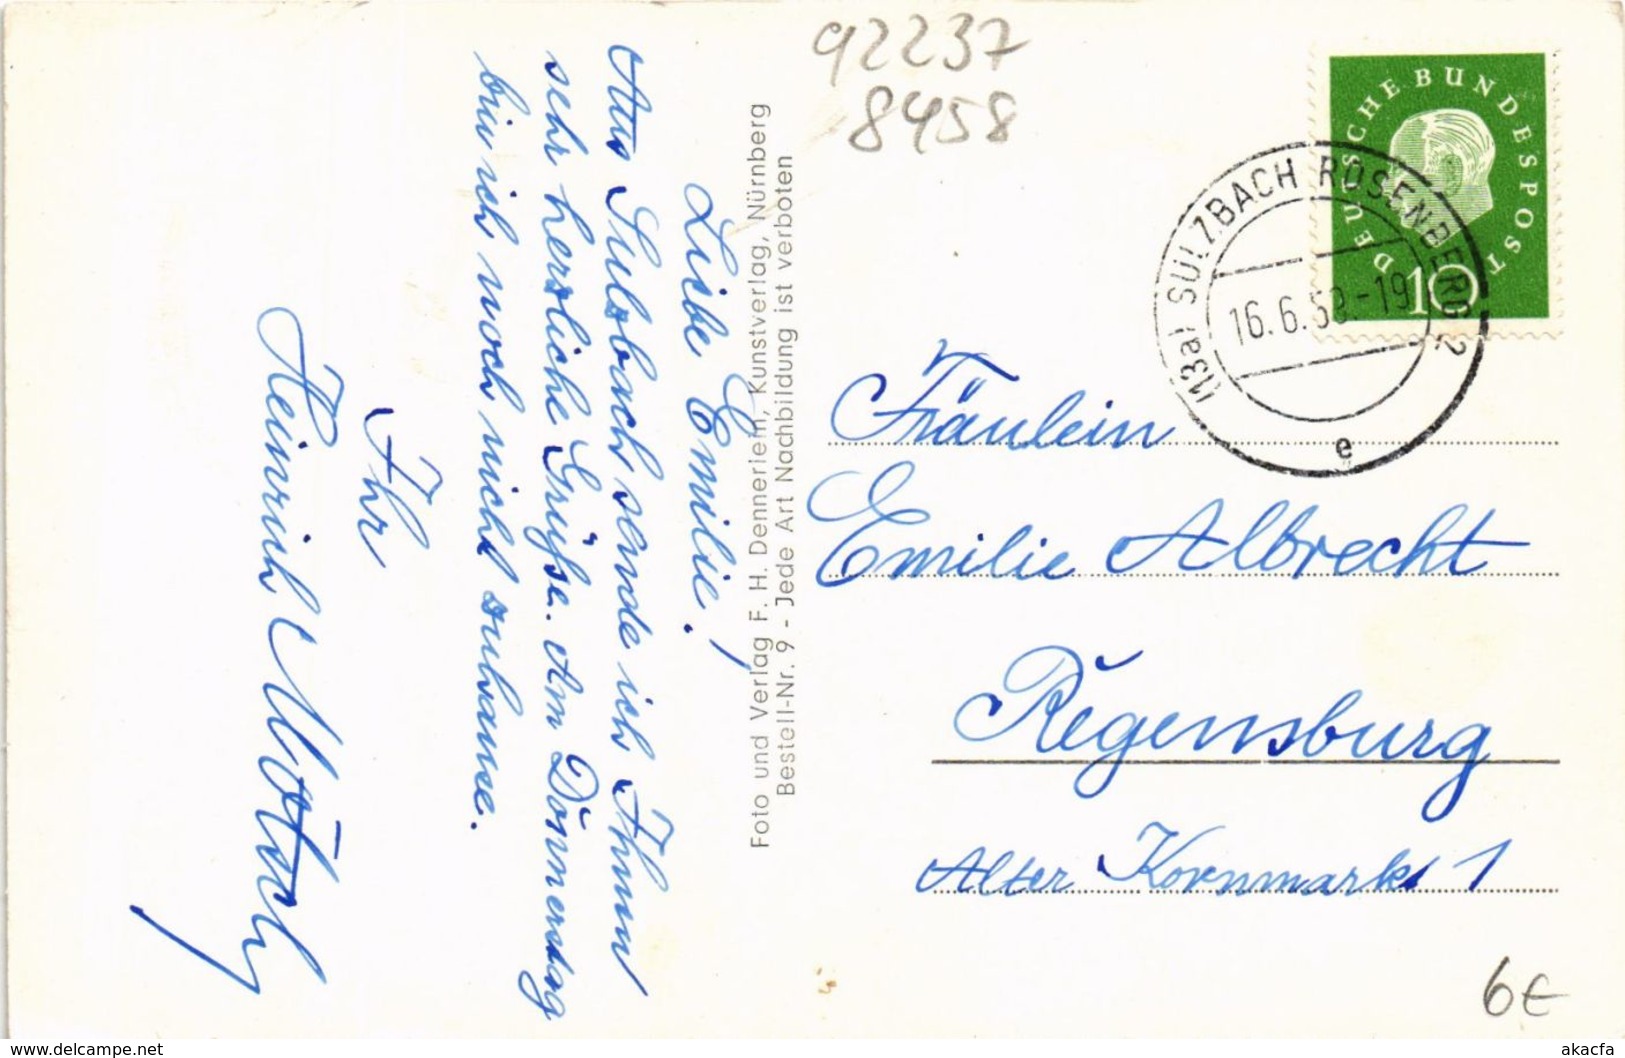 92237
8458
DEUTSCHE BUNDESPOST
10
(13a) SULZBACH ROSENBERG 2
16.6.59.-19
e
Liebe Emilie!
Aus Sulzbach sende ich Ihnen
sehr herzliche Grüße. Am Dönnerstag
bin ich noch nicht zuhause.
Ihr
Heinrich
Foto und Verlag F. H. Dennerlein, Kunstverlag, Nürnberg
Bestell-Nr. 9 - Jede Art Nachbildung ist verboten
Fräulein
Emilie Albrecht
Regensburg
Alter Kornmarkt 1
6€
www.delcampe.net
akacfa